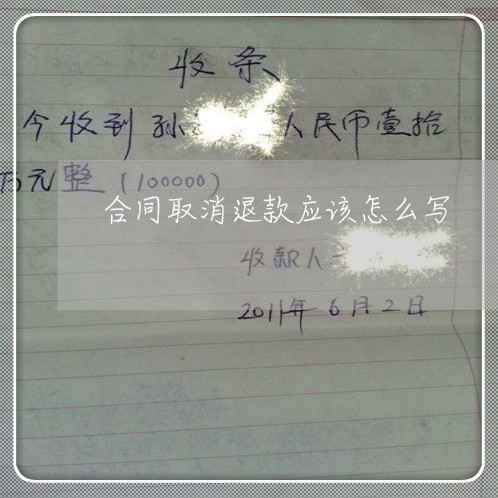 收条
今收到孙 人民币壹拾
万元整（100000）
合同取消退款应该怎么写
收款人
2011年6月2日